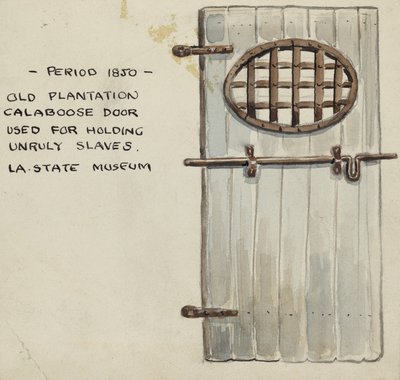 - PERIOD 1850 -
OLD PLANTATION
CALABOOSE DOOR
USED FOR HOLDING
UNRULY SLAVES.
LA. STATE MUSEUM